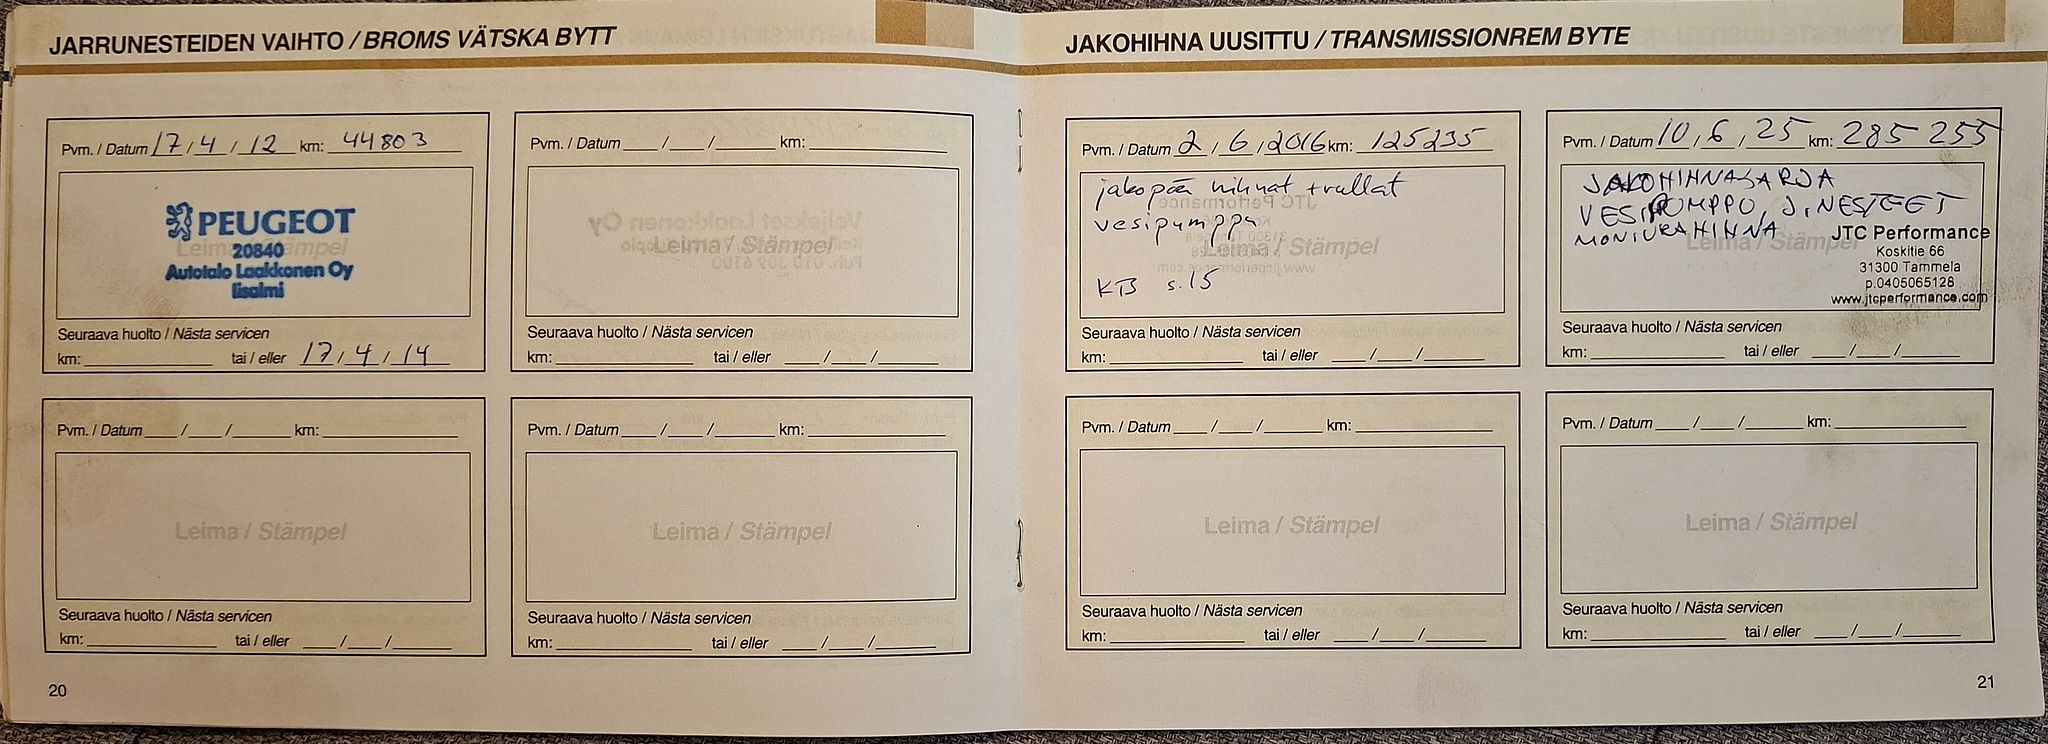 JARRUNESTEIDEN VAIHTO / BROMS VÄTSKA BYTT
Pvm. / Datum 17 / 4 / 12 km: 44803
PEUGEOT
Leima / Stämpel
20840
Autotalo Laakkonen Oy
Iisalmi
Seuraava huolto / Nästa servicen
km: tai / eller 17 / 4 / 14
Pvm. / Datum / / km:
Leima / Stämpel
Seuraava huolto / Nästa servicen
km: tai / eller / /
Pvm. / Datum / / km:
Leima / Stämpel
Seuraava huolto / Nästa servicen
km: tai / eller / /
Pvm. / Datum / / km:
Leima / Stämpel
Seuraava huolto / Nästa servicen
km: tai / eller / /
20
JAKOHIHNA UUSITTU / TRANSMISSIONREM BYTE
Pvm. / Datum 2 / 6 / 2016 km: 125235
jakopää hihnat + rullat
vesipumppu
Leima / Stämpel
KTB s.15
Seuraava huolto / Nästa servicen
km: tai / eller / /
Pvm. / Datum 10 / 6 / 25 km: 285 255
JAKOHIHNASARJA
VESIPUMPPU, J.NESTEET
MONIURAHIHNA
Leima / Stämpel
JTC Performance
Koskitie 66
31300 Tammela
p.0405065128
www.jtcperformance.com
Seuraava huolto / Nästa servicen
km: tai / eller / /
Pvm. / Datum / / km:
Leima / Stämpel
Seuraava huolto / Nästa servicen
km: tai / eller / /
Pvm. / Datum / / km:
Leima / Stämpel
Seuraava huolto / Nästa servicen
km: tai / eller / /
21